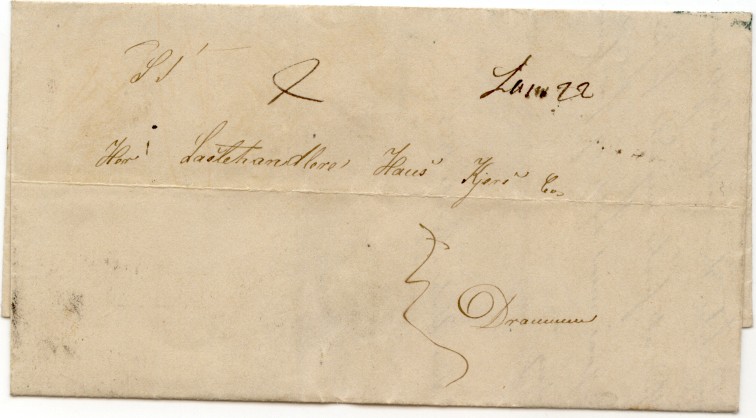 S S 2 Lau 22
Herr Lastehandlere Hans Kjers Co
Drammen